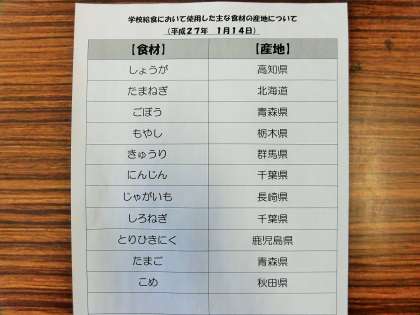 学校給食において使用した主な食材の産地について
（平成２７年　１月１４日）
【食材】　【産地】
しょうが　高知県
たまねぎ　北海道
ごぼう　青森県
もやし　栃木県
きゅうり　群馬県
にんじん　千葉県
じゃがいも　長崎県
しろねぎ　千葉県
とりひきにく　鹿児島県
たまご　青森県
こめ　秋田県